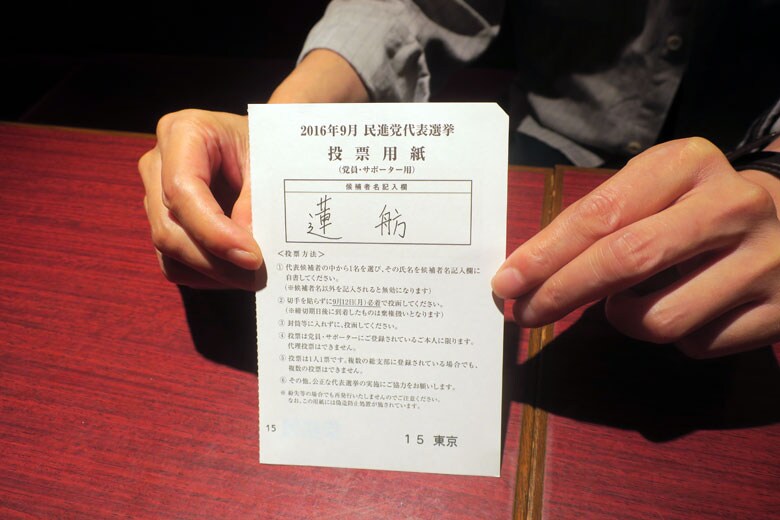 2016年9月 民進党代表選挙
投票用紙
(党員・サポーター用)
候補者名記入欄
蓮 舫
＜投票方法＞
① 代表候補者の中から1名を選び、その氏名を候補者名記入欄に
自書してください。
(※候補者名以外を記入されると無効になります)
② 切手を貼らずに9月12日(月)必着で投函してください。
(※締切期日後に到着したものは棄権扱いとなります)
③ 封筒等に入れずに、投函してください。
④ 投票は党員・サポーターにご登録されているご本人に限ります。
代理投票はできません。
⑤ 投票は1人1票です。複数の総支部に登録されている場合でも、
複数の投票はできません。
⑥ その他、公正な代表選挙の実施にご協力をお願いします。
※ 紛失等の場合でも再発行いたしませんのでご注意ください。
なお、この用紙には偽造防止処置が施されています。
15
15 東京